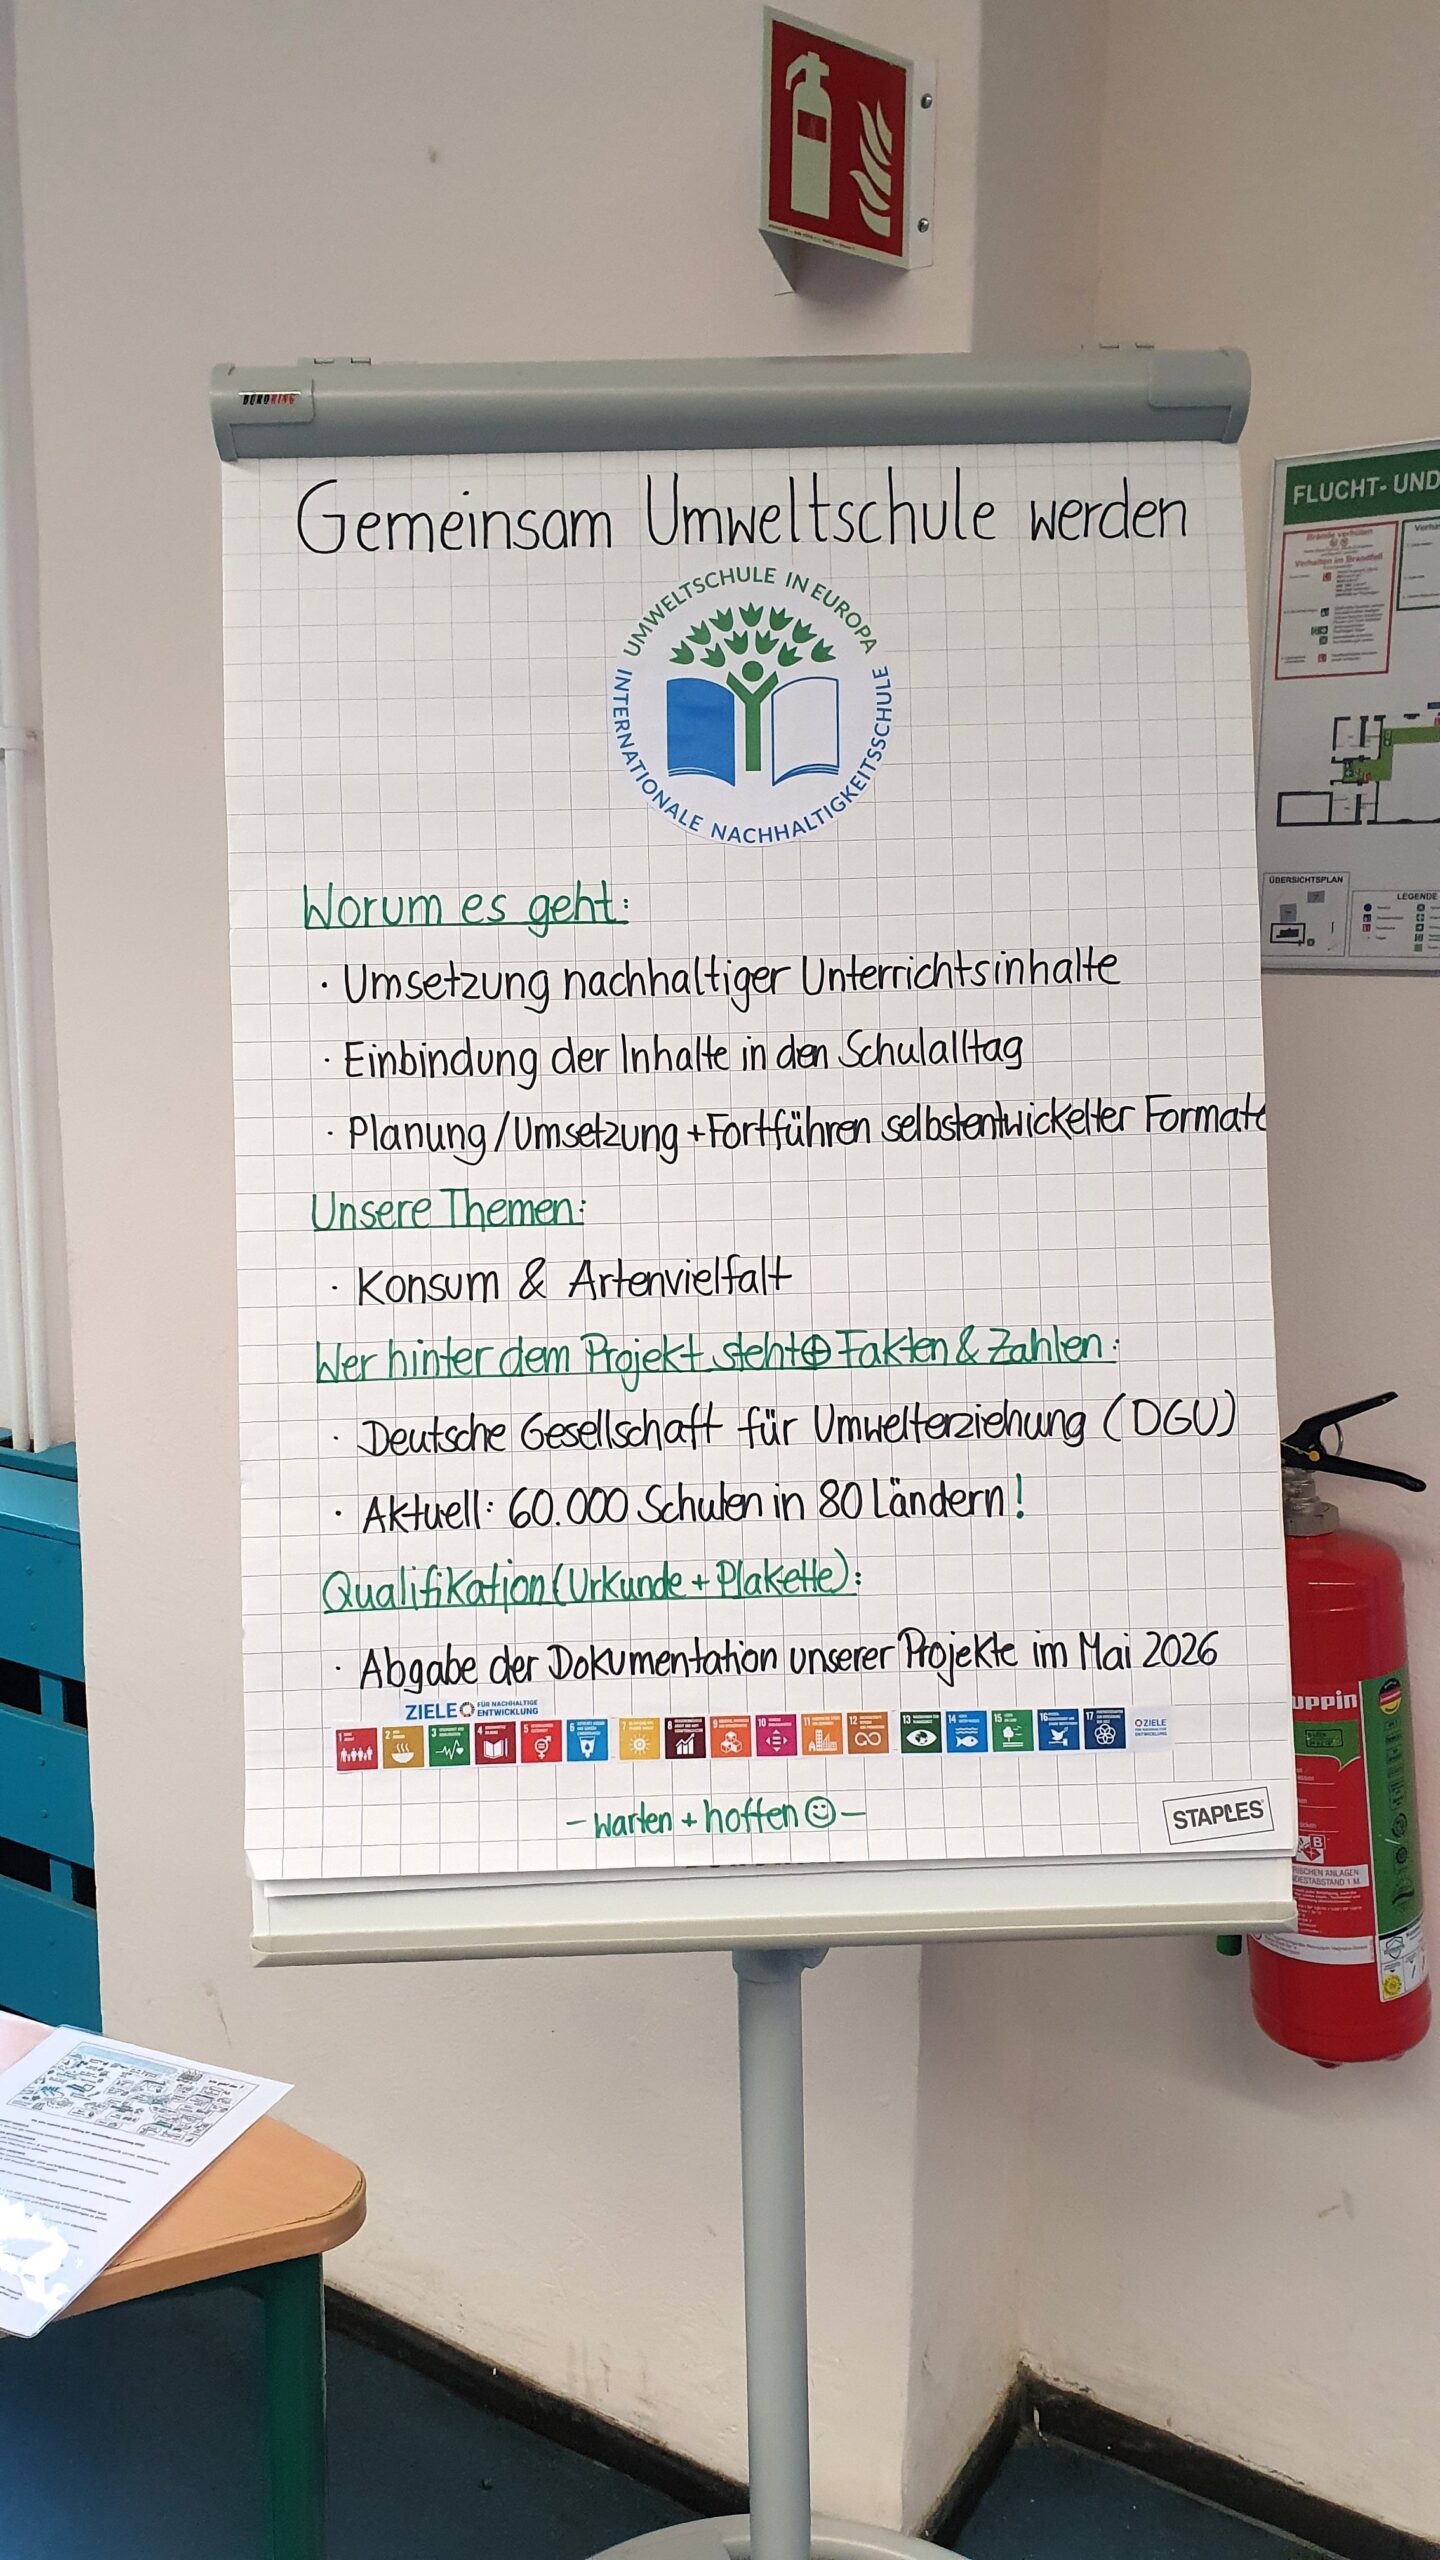 BÜRORING
Gemeinsam Umweltschule werden
UMWELTSCHULE IN EUROPA
INTERNATIONALE NACHHALTIGKEITSSCHULE
Worum es geht:
· Umsetzung nachhaltiger Unterrichtsinhalte
· Einbindung der Inhalte in den Schulalltag
· Planung/Umsetzung + Fortführen selbstentwickelter Formate
Unsere Themen:
· Konsum & Artenvielfalt
Wer hinter dem Projekt steht ⊕ Fakten & Zahlen:
· Deutsche Gesellschaft für Umwelterziehung (DGU)
· Aktuell: 60.000 Schulen in 80 Ländern!
Qualifikation (Urkunde + Plakette):
· Abgabe der Dokumentation unserer Projekte im Mai 2026
ZIELE FÜR NACHHALTIGE ENTWICKLUNG
1 2 3 4 5 6 7 8 9 10 11 12 13 14 15 16 17
ZIELE
- warten + hoffen ☺ -
STAPLES
FLUCHT- UND
Brände verhüten
Verhalten im Brandfall
ÜBERSICHTSPLAN
LEGENDE
uppin